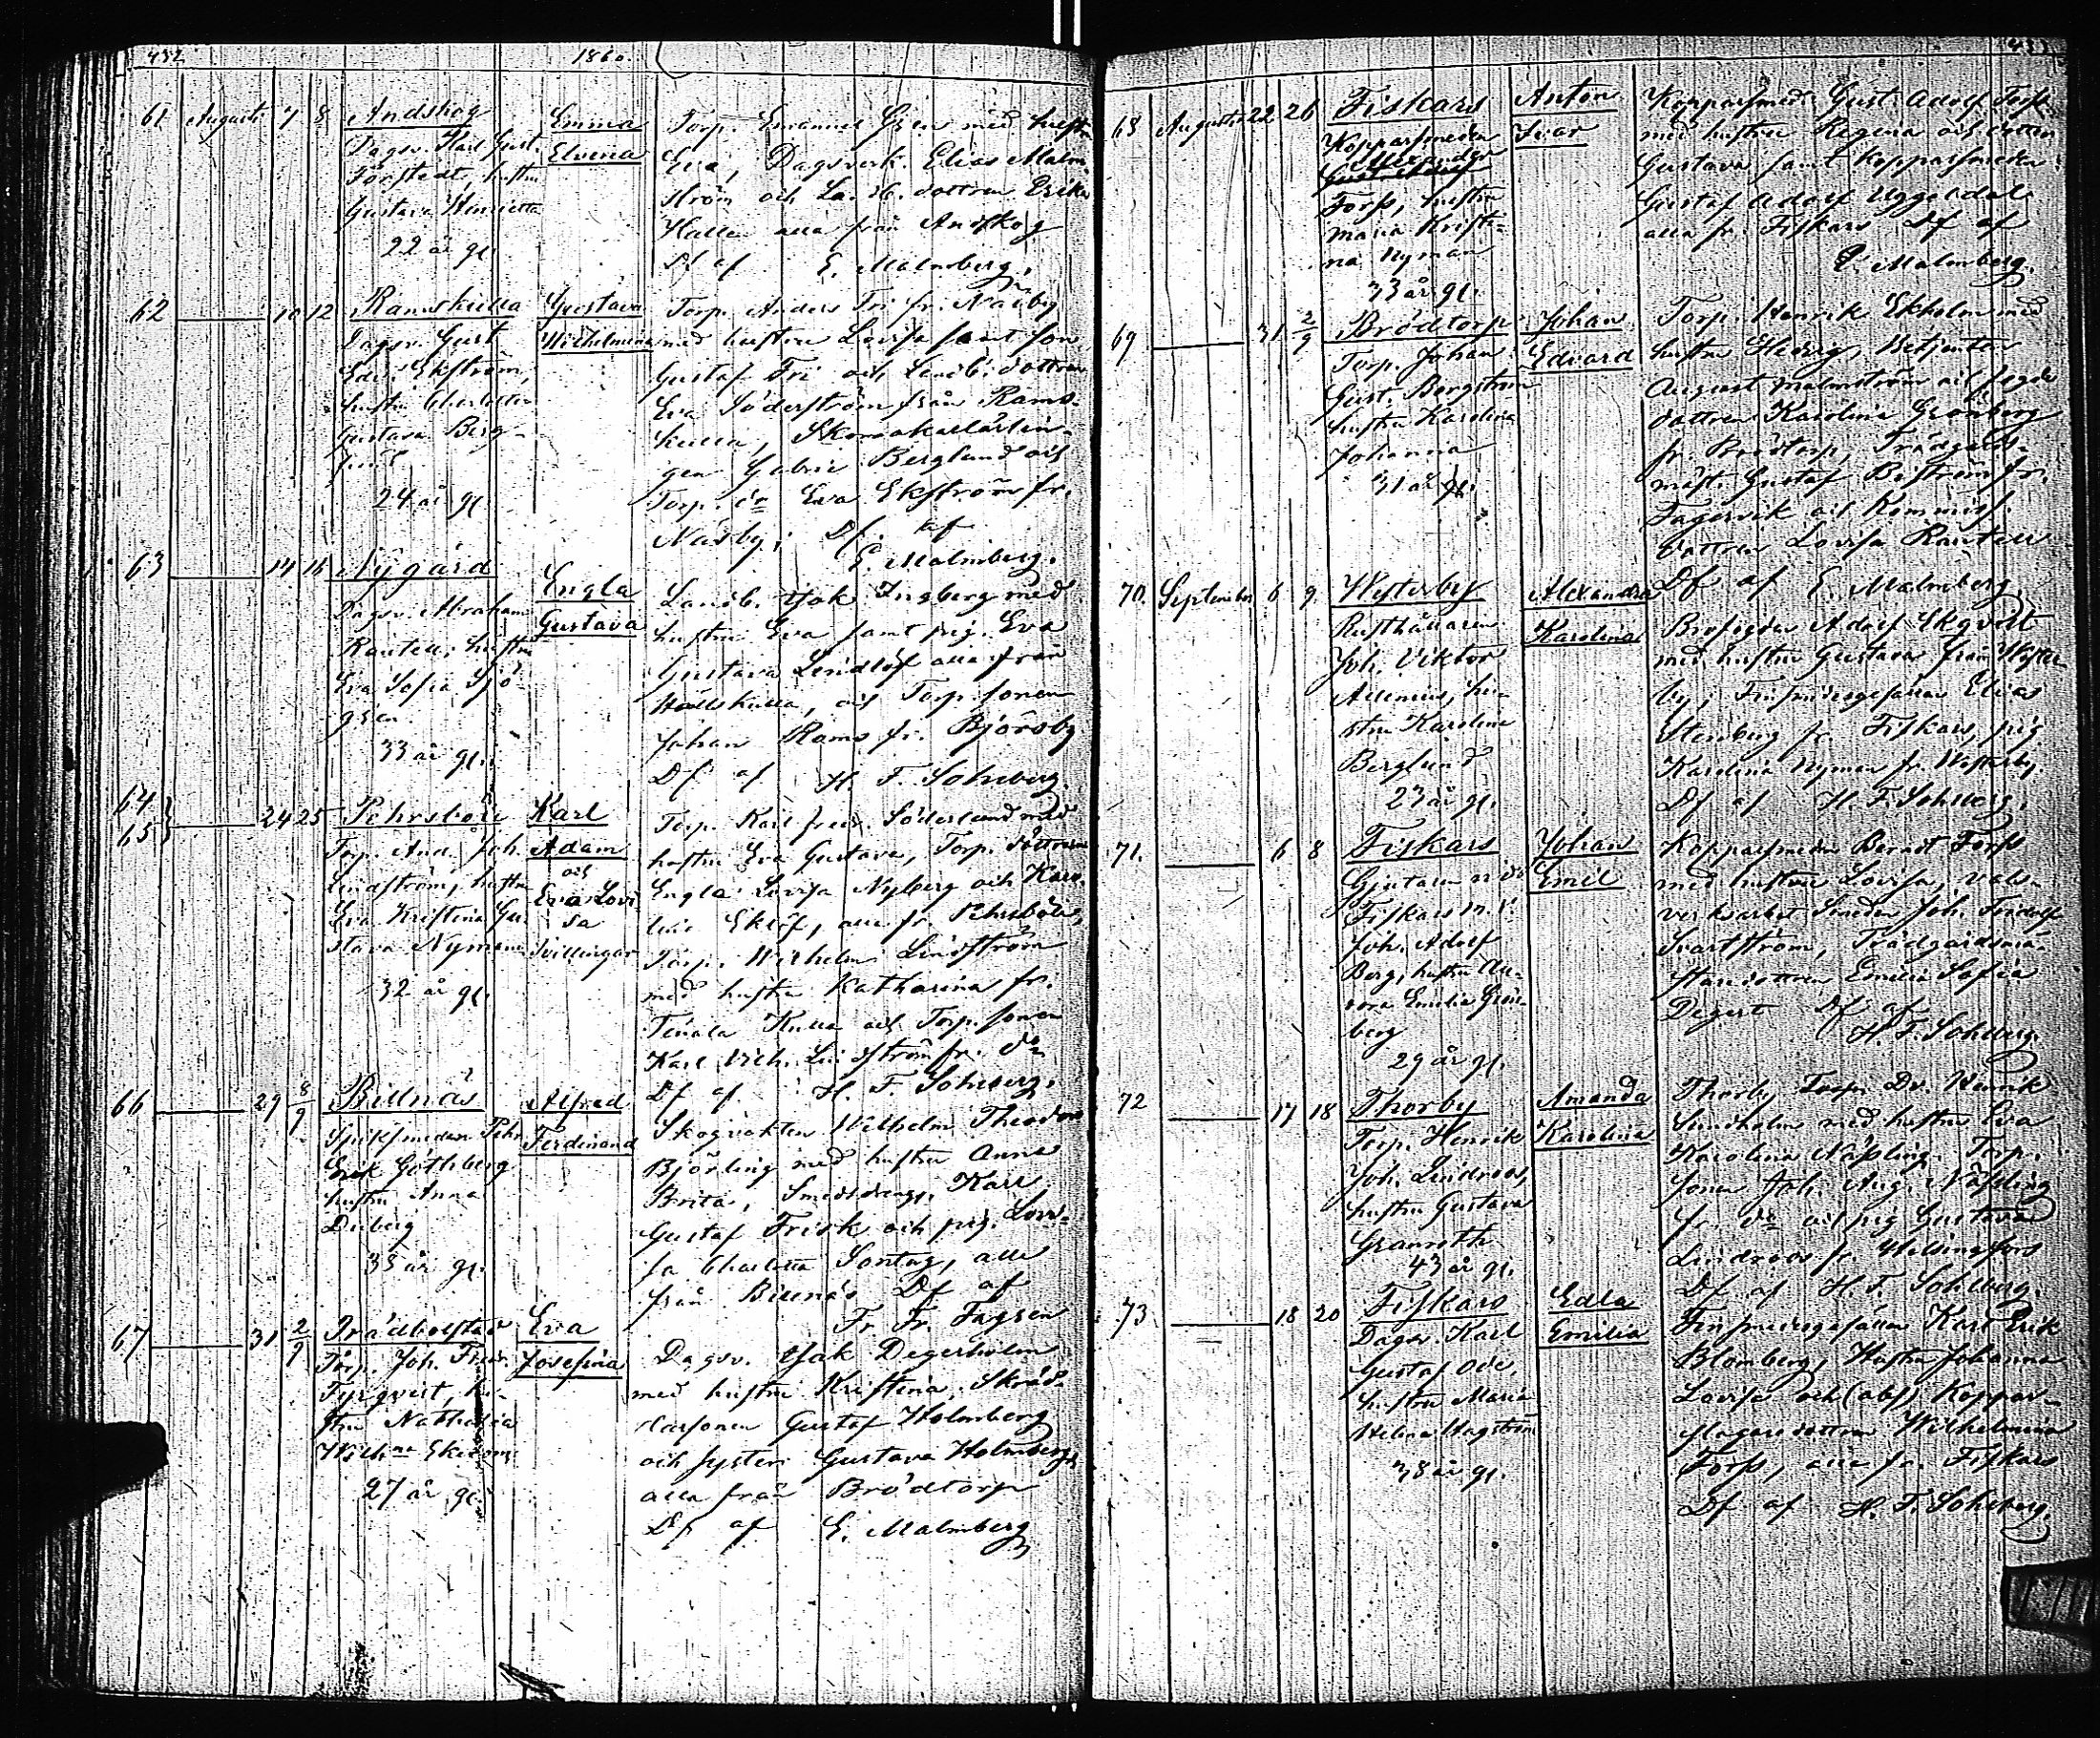 452
1860.
61 Augusti 7 8 Andskog
Dagsv. Karl Gust.
Forstedt, hustru
Gustava Henrietta
22 år gl.
Emma
Elvina
Torp. Emanuel Gren med hustru
Eva, Dagsverk. Elias Malm
ström och dottren Erika
Hallen alla från Andskog
Df af E. Malmberg.
62 10 12 Ramskulla
Dagsv. Gust
Edv. Ekström,
hustru Charlotta
Gustava Berg-
24 år gl.
Gustava
Wilhelmina
Torp. Anders Fri fr. Näsby
med hustru Lovisa samt son
Gustaf Fri och Landb. dottren
Eva Söderström från Rams-
kulla, Skomakarlärlin-
gen Berglund och
Torp. Eva Ekström fr.
Näsby; Df. af
E. Malmberg.
63 14 16 Nygård
Dagsv. Abraham
Rautell, hustru
Eva Sofia Sjö-
gren
33 år gl.
Engla
Gustava
Landb. Isak Ingberg med
hustru Eva samt pig. Eva
Gustava Lindlöf alla från
och Torp. sonen
Johan Rams fr. Björsby
Df af H. F. Sohlberg.
64
65 24 25 Pehrsböle
Torp. And. Joh.
Lindström, hustru
Eva Kristina Gu-
stava Nyman
32 år gl.
Karl
Adam
och
Eva Lovi-
sa
Tvillingar
Torp. Karl Fredr. Söderlund med
hustru Eva Gustava, Torp. dottren
Engla Lovisa Nyberg och Karo-
lina Eklöf, alla fr. Pehrsböle,
Torp. Wilhelm Lindström
med hustru Katharina fr.
Tenala Kulla och Torp. sonen
Karl Vilh. Lindström fr. do
Df af H. F. Sohlberg.
66 29 8/9 Billnäs
Spiksmeden Pehr
Erik Göthberg
hustru Anna
33 år gl.
Alfred
Ferdinand
Skogvakten Wilhelm Theodor
Björling med hustru Anna
Brita, Smedsdräng. Karl
Gustaf Frisk och pig. Lovi-
sa Charlotta Sontag, alla
från Billnäs Df af
Fr. Fr. Fagren
67 31 2/9 Brödbolstad
Torp. Joh. Fredr.
Fyrqvist, hu-
stru Nathalia
Wilhna Ekebom
27 år gl.
Eva
Josefina
Dagsv. Isak Degerholm
med hustru Kristina. Skräd-
darsonen Gustaf Holmberg
och syster Gustava Holmberg
alla från Brödtorp
Df af E. Malmberg
68 Augusti 22 26 Fiskars
Kopparsmeden
Alexander
Forss, hustru
Maria Kristi-
na Nyman
33 år gl.
Anton
Ivar
Kopparsmed. Gust. Adolf Forss
med hustru Regina och dottren
Gustava samt kopparsmeden
Gustaf Adolf Uggeldal
alla fr. Fiskars Df af
E. Malmberg.
69 31 2/9 Brödtorp
Torp. Johan
Gust. Bergström
hustru Karolina
Johanna
31 år gl.
Johan
Edvard
Torp. Henrik Ekholm med
hustru Hedvig, Betjenten
August Malmström och
dottren Karolina Grönberg
fr. Brödtorp, Trädgårds-
mäst. Gustaf Biström fr.
Fagervik och Kommiss.
dottren Lovisa Rautell
Df af E. Malmberg
70. September 6 9 Westerby
Rusthållaren
Joh. Viktor
Allenius, hu-
stru Karolina
Berglund
23 år gl.
Alexandra
Karolina
Adolf Ekqvist
med hustru Gustava från Wester
by; Finsmidsgesällen Elias
Stenberg fr. Fiskars, pig
Karolina Nyman fr. Westerby.
Df af H. F. Sohlberg.
71. 6 8 Fiskars
Gjutaren vid
Fiskars M. V.
Joh. Adolf
Berg, hustru Au-
rora Emilia Grön-
berg
29 år gl.
Johan
Emil
Kopparsmeden Berndt Forss
med hustru Lovisa, vals-
verksarbet. Smeden Joh. Fridolf
Svartström, Trädgårdsmä-
staredottren Emilia Sofia
Degert Df af
H. F. Sohlberg.
72 17 18 Thorby
Torp. Henrik
Joh. Lindroos,
hustru Gustava
Granroth
43 år gl.
Amanda
Karolina
Thorby Torp. Henrik
Sundholm med hustru Eva
Karolina Näsling. Torp.
sonen Joh. Aug. Näsling
fr. do och pig Gustava
Lindroos fr. Helsingfors
Df af H. F. Sohlberg.
73 18 20 Fiskars
Dagsv. Karl
Gustaf Ode,
hustru Maria
Helena Hagström
38 år gl.
Edla
Emilia
Finsmidsgesällen Karl Erik
Blomberg, Hustru Johanna
Lovisa och (abs) Koppar-
slagaredottren Wilhelmina
Forss, alla fr. Fiskars
Df af H. F. Sohlberg.